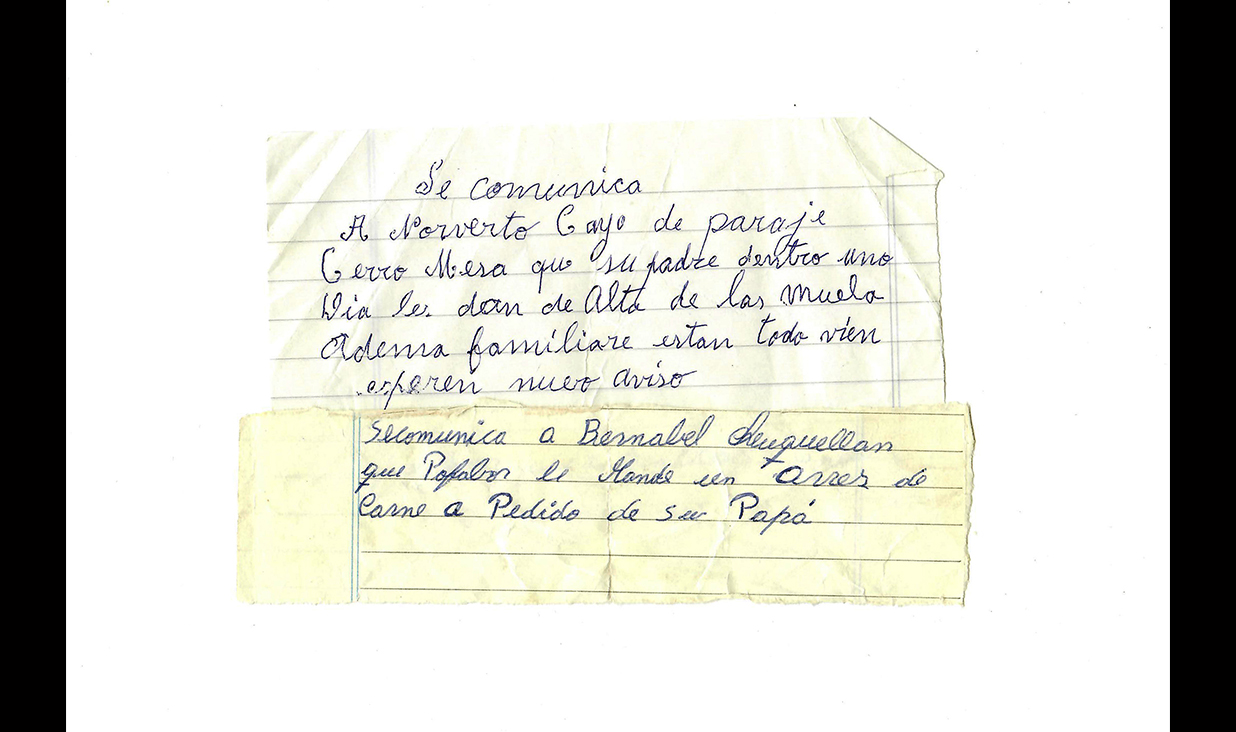 Se comunica
A Norverto Cayo de paraje
Cerro Mesa que su padre dentro uno
Dia le dan de Alta de las muela
Adema familiare estan todo vien
esperen nuevo aviso
Secomunica a Bernabel
que Pofabor le Mande un de
Carne a Pedido de su Papá